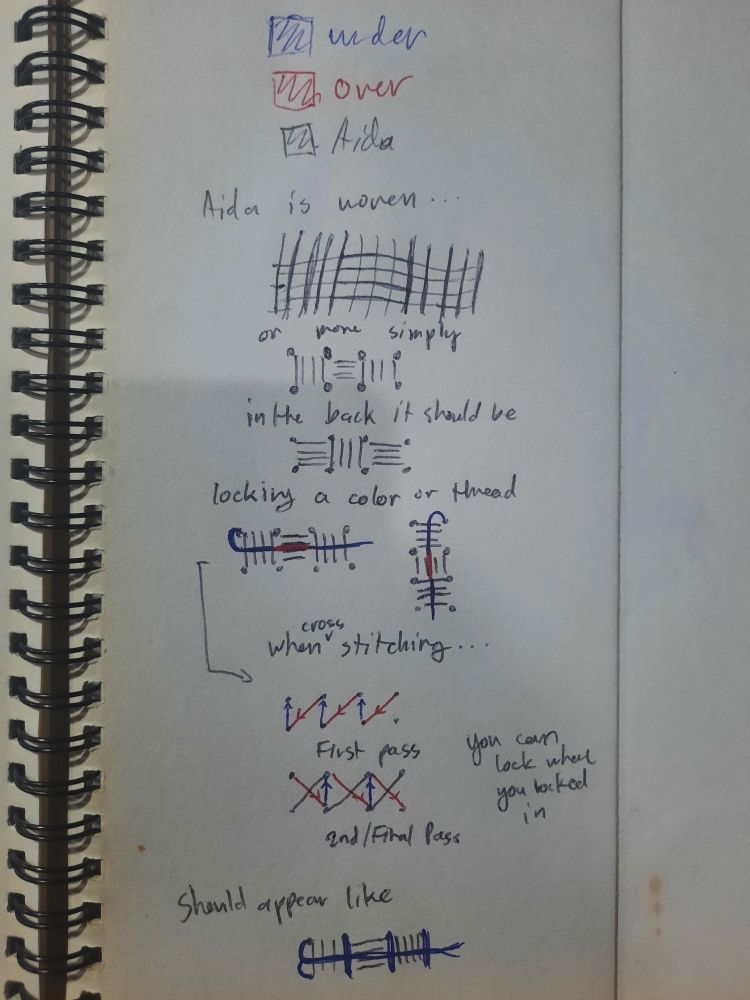 under
over
Aida
Aida is woven...
or more simply
in the back it should be
locking a color or thread
when cross stitching...
First pass
you can
lock what
you locked
in
2nd/Final Pass
Should appear like